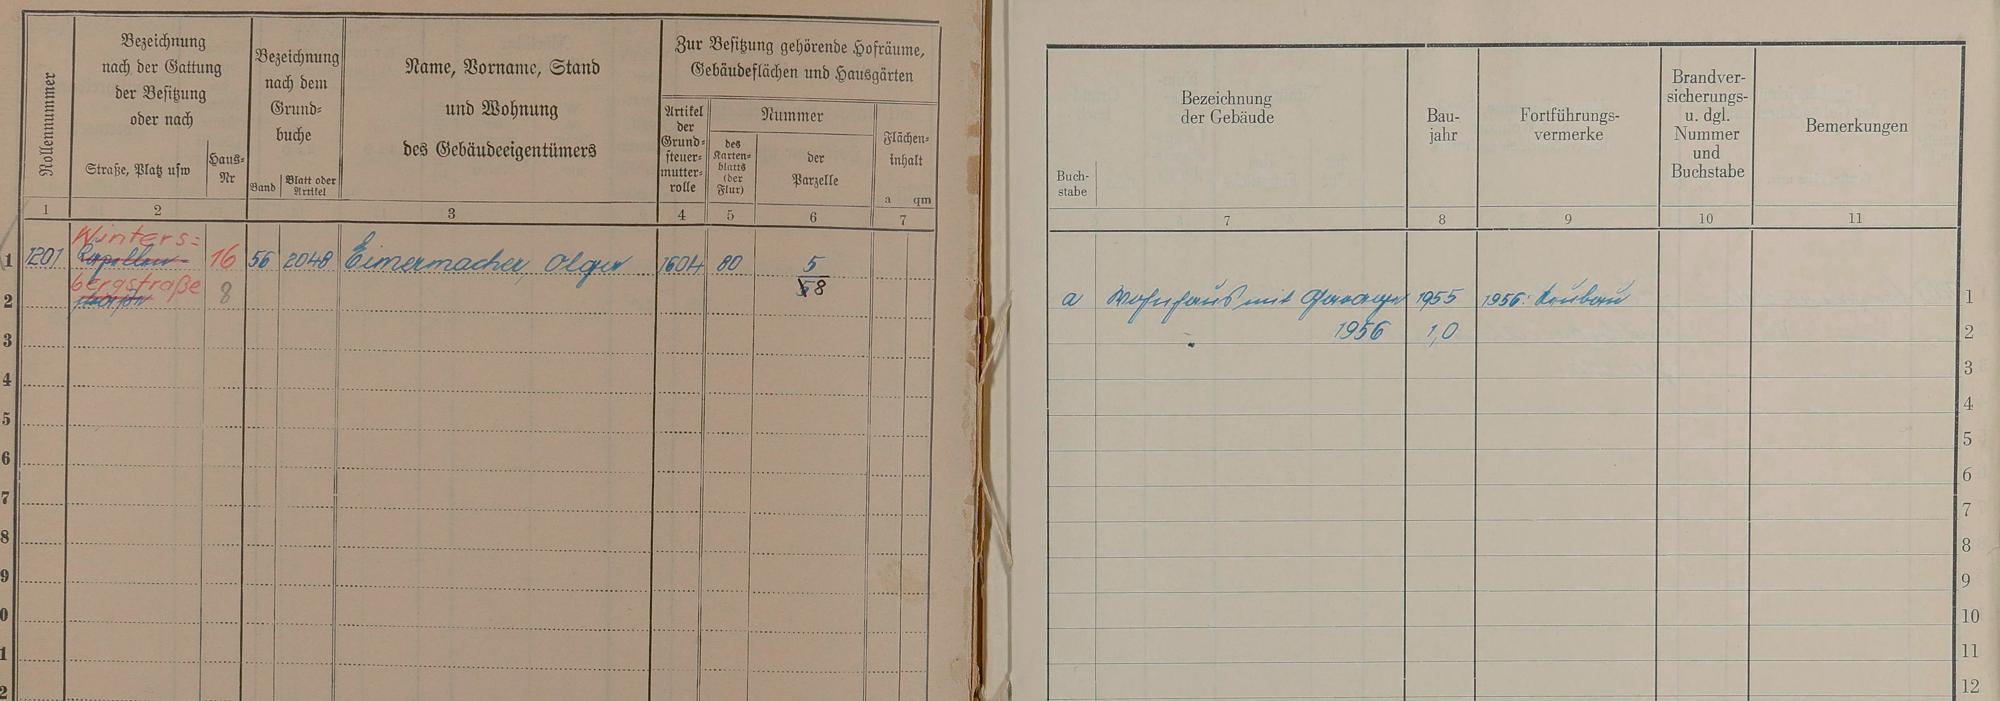 Rollennummer
Bezeichnung
nach der Gattung
der Besitzung
oder nach
Straße, Platz usw
Haus-
Nr
Bezeichnung
nach dem
Grund-
buche
Band
Blatt oder
Artikel
Name, Vorname, Stand
und Wohnung
des Gebäudeeigentümers
Zur Besitzung gehörende Hofräume,
Gebäudeflächen und Hausgärten
Artikel
der
Grund-
steuer-
mutter-
rolle
Nummer
des
Karten-
blatts
(der
Flur)
der
Parzelle
Flächen-
inhalt
a qm
1 2 3 4 5 6 7
1 1201 Winters= 16 56 2048 Eimermacher, Olga 1604 80 5
Kapellen-
bergstraße 8 58
2 straße
3
4
5
6
7
8
9
0
1
2
Buch-
stabe
Bezeichnung
der Gebäude
Bau-
jahr
Fortführungs-
vermerke
Brandver-
sicherungs-
u. dgl.
Nummer
und
Buchstabe
Bemerkungen
7 8 9 10 11
a Wohnhaus mit Garage 1955 1956: Neubau 1
1956 1,0 2
3
4
5
6
7
8
9
10
11
12